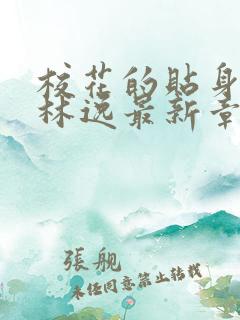 校花的贴身
林逸最新章
張舰
未经同意禁止转载